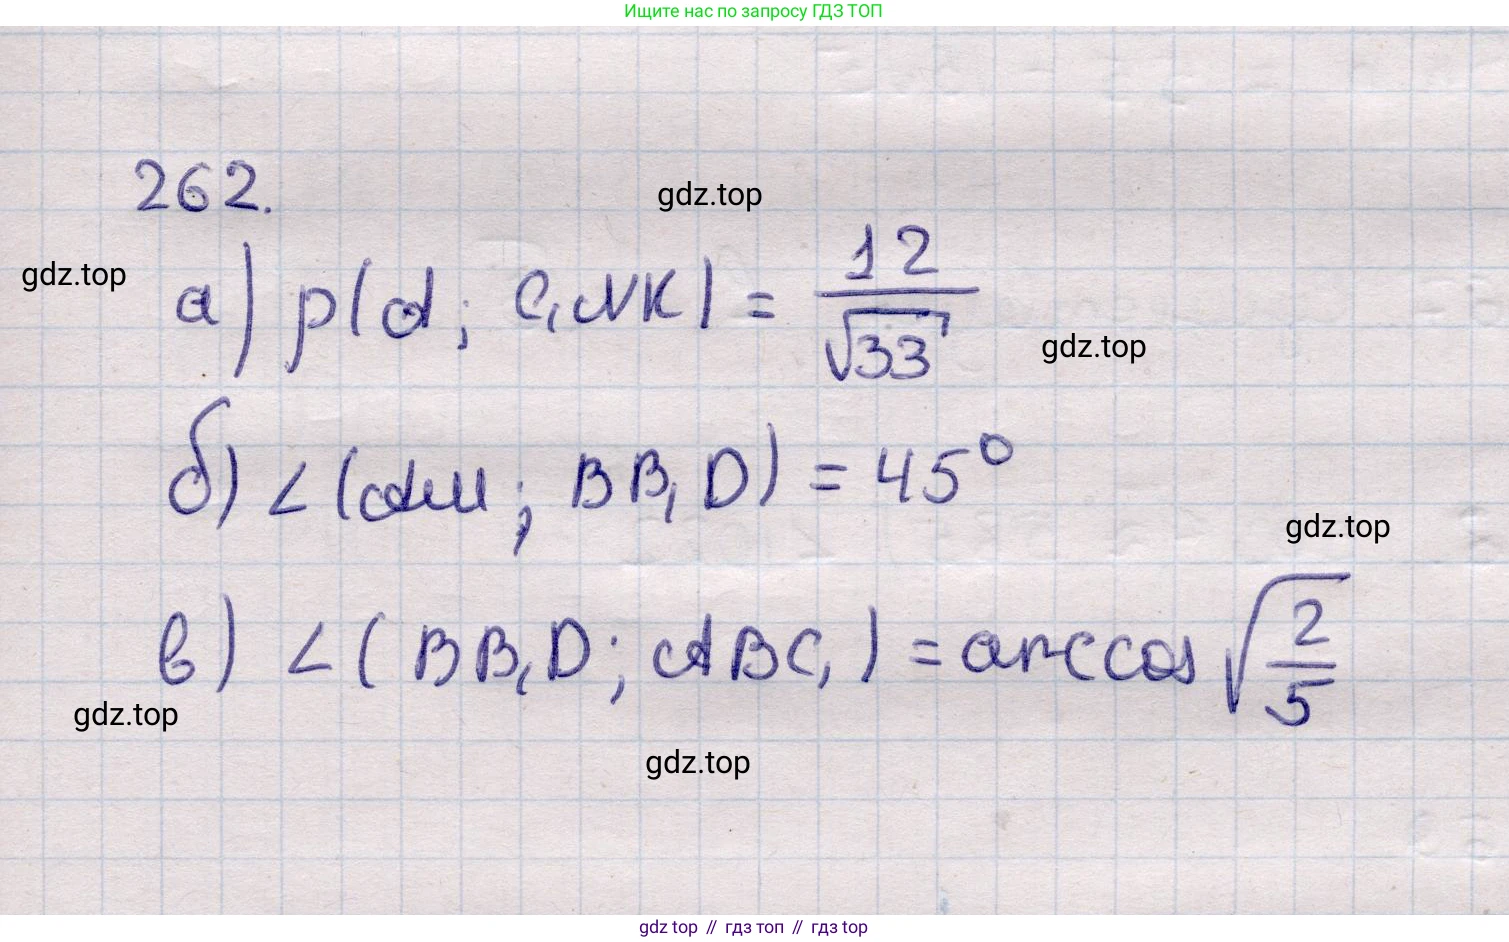 Ищите нас по запросу ГДЗ ТОП
262.
gdz.top
gdz.top
а) ρ(A; C₁NK) = 12/√33
gdz.top
б) ∠(AM; BB₁D) = 45°
gdz.top
в) ∠(BB₁D; ABC₁) = arccos √(2/5)
gdz.top
gdz.top
gdz top // гдз топ // гдз top